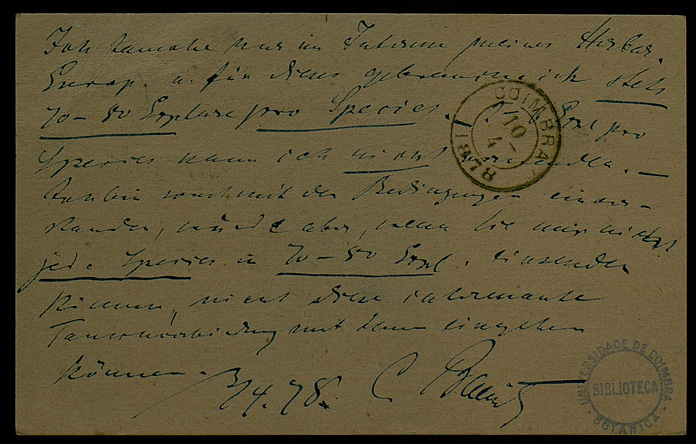 Ich tausche nur im Interesse meines Herbar.
Europ. u. für dieses gebrauche ich stets
70–80 Exemplare pro Species. Expl pro
Species kann ich nicht verwenden. –
Ich bin sonst mit den Bedingungen einver-
standen, würde aber, wenn Sie mir nicht
jede Species in 70–80 Expl. einsenden
können, nicht diese interessante
Tauschverbindung mit Ihnen eingehen
können. –
4.78. C Baenitz
COIMBRA
10
4
1878
UNIVERSIDADE DE COIMBRA
BIBLIOTECA
BOTANICA